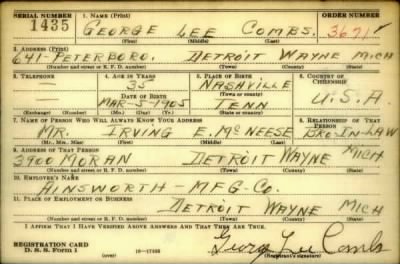 SERIAL NUMBER 1. NAME (Print) ORDER NUMBER
1435 GEORGE LEE COMBS. 3671
(First) (Middle) (Last)
2. ADDRESS (Print)
641-PETERBORO. DETROIT WAYNE MICH
(Number and street or R. F. D. number) (Town) (County) (State)
3. TELEPHONE 4. AGE IN YEARS 5. PLACE OF BIRTH 6. COUNTRY OF CITIZENSHIP
— 35 NASHVILLE
DATE OF BIRTH (Town or county) U.S.A.
— MAR-5-1905 TENN
(Exchange) (Number) (Mo.) (Day) (Yr.) (State or country)
7. NAME OF PERSON WHO WILL ALWAYS KNOW YOUR ADDRESS 8. RELATIONSHIP OF THAT PERSON
MR. IRVING E. McNEESE BRO-IN-LAW
(Mr., Mrs., Miss) (First) (Middle) (Last)
9. ADDRESS OF THAT PERSON
3900 MORAN DETROIT WAYNE MICH
(Number and street or R. F. D. number) (Town) (County) (State)
10. EMPLOYER'S NAME
AINSWORTH - MFG-CO.
11. PLACE OF EMPLOYMENT OR BUSINESS
DETROIT WAYNE MICH
(Number and street or R. F. D. number) (Town) (County) (State)
I AFFIRM THAT I HAVE VERIFIED ABOVE ANSWERS AND THAT THEY ARE TRUE.
REGISTRATION CARD George Lee Combs
D. S. S. Form 1 (over) 16-17105 (Registrant's signature)